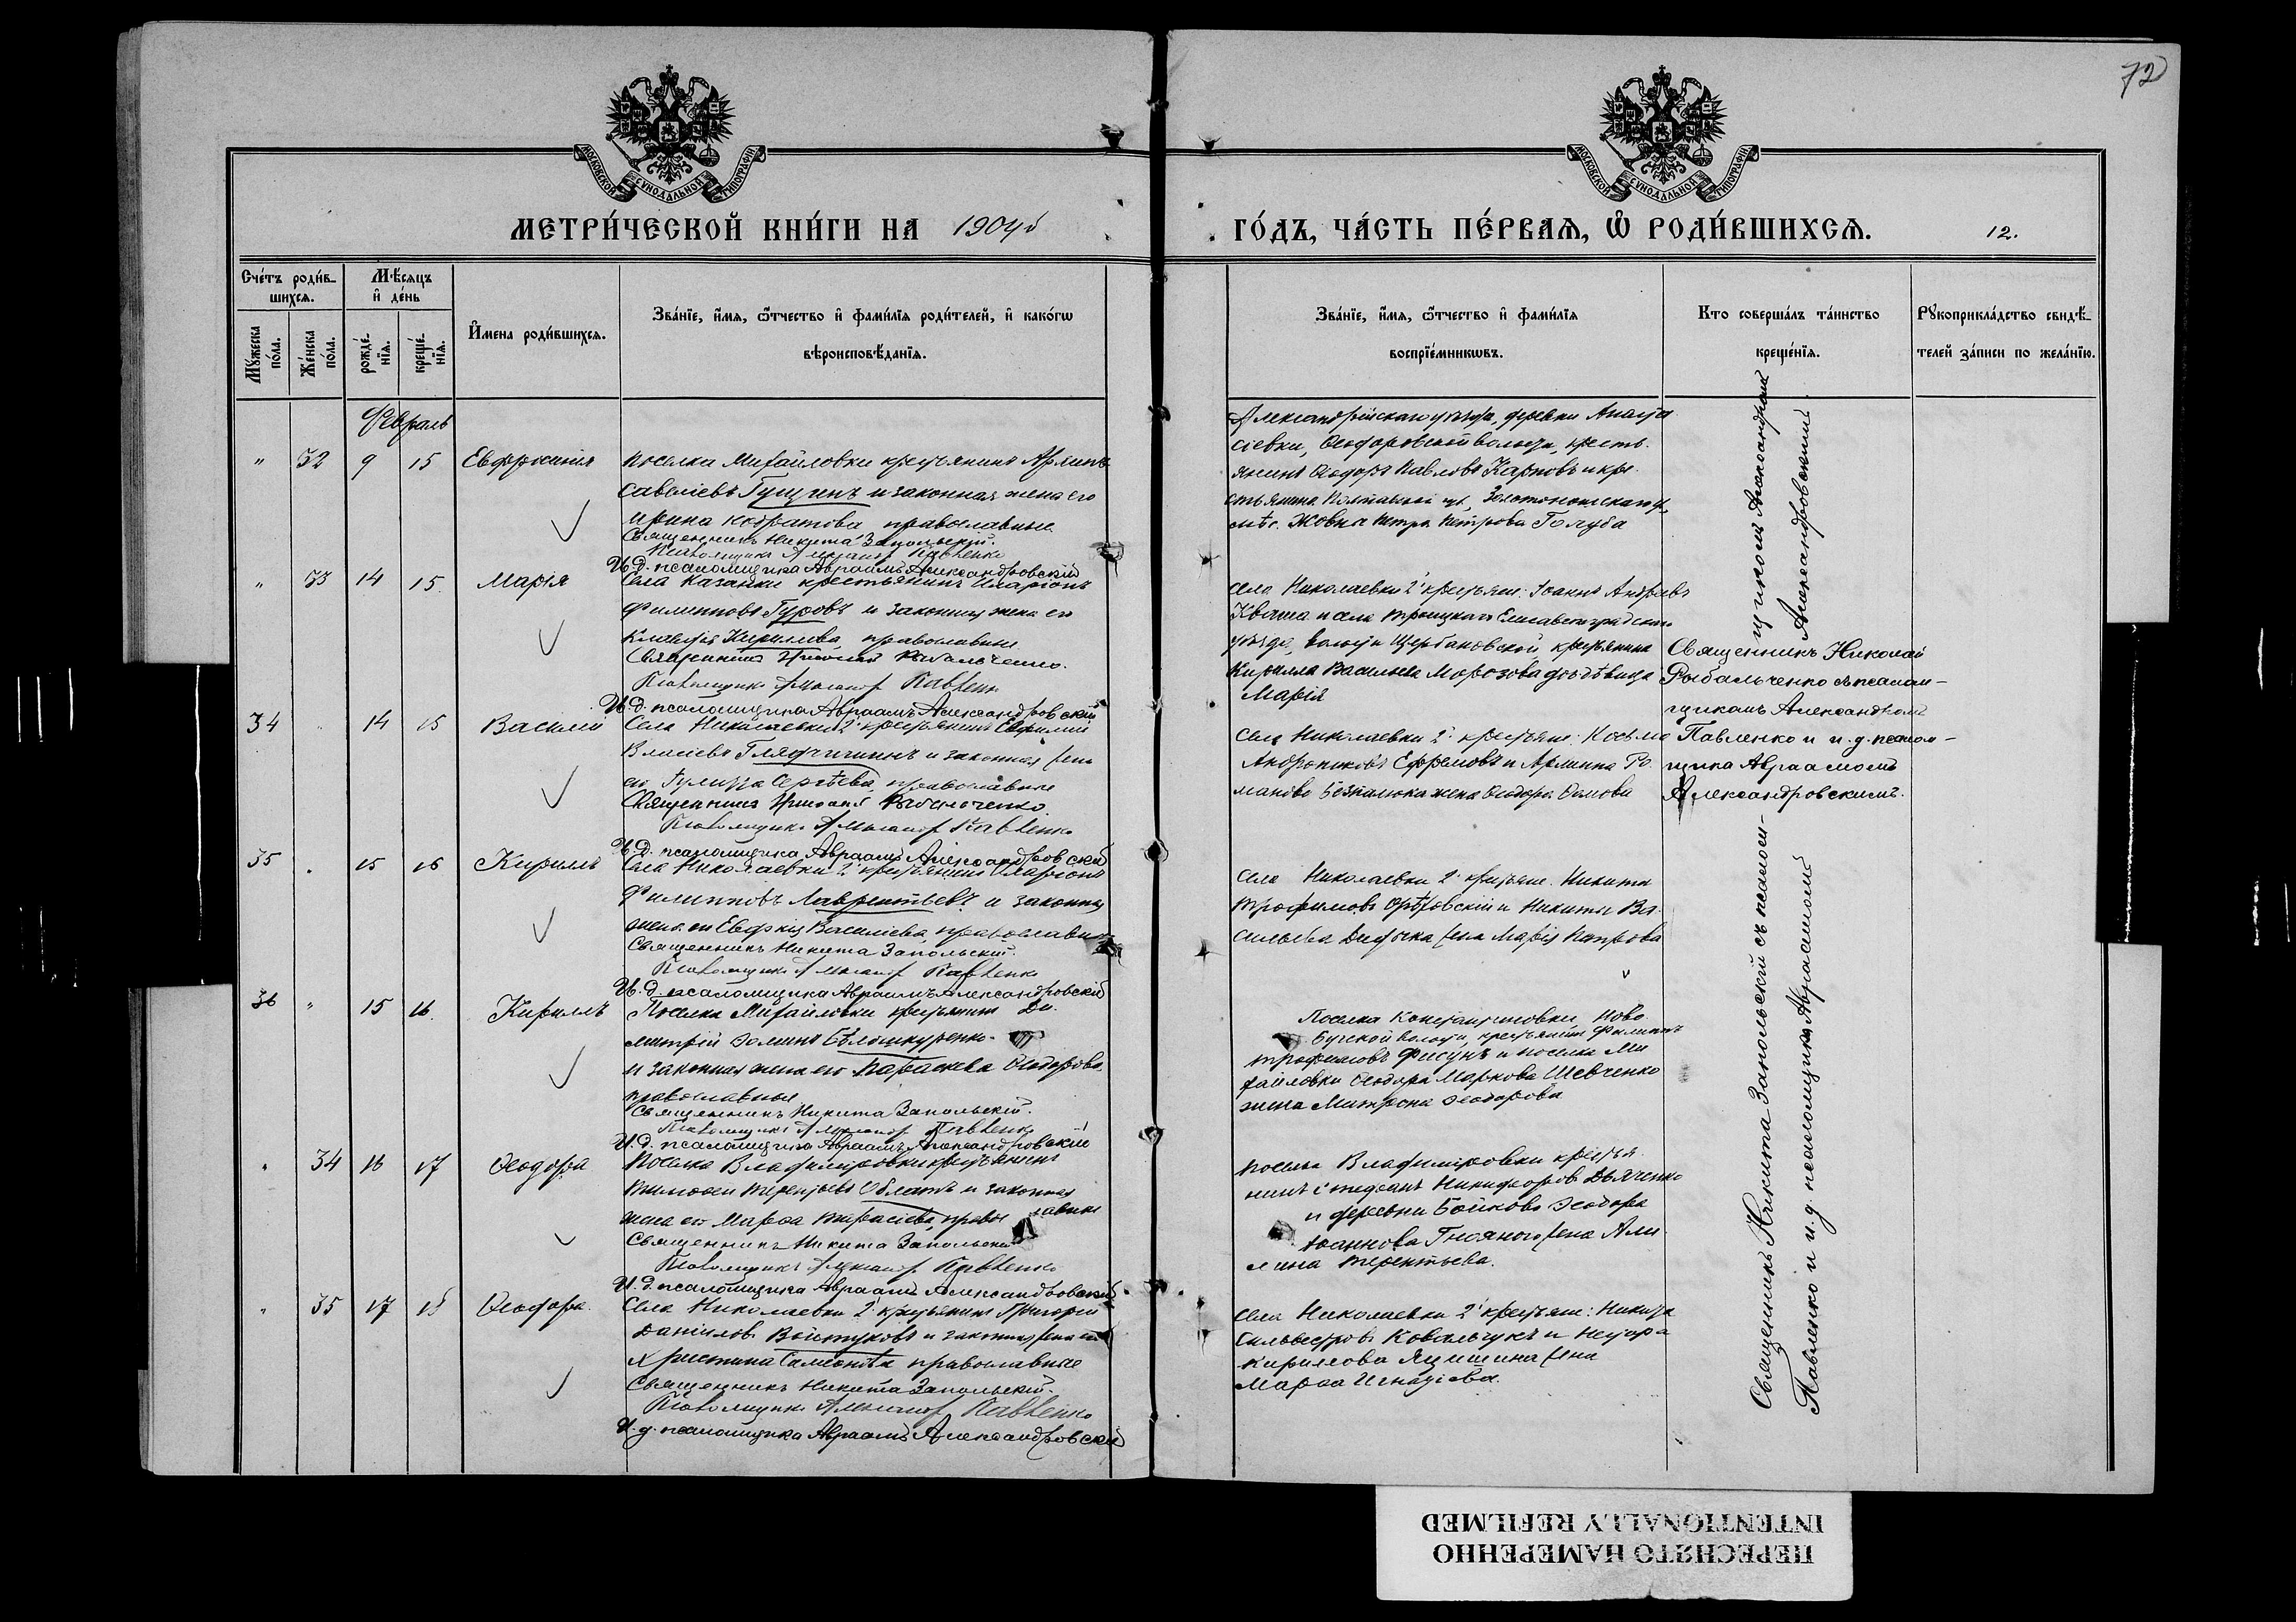 72
МОСКОВСКОЙ СѴНОДАЛЬНОЙ ТИПОГРАФІИ
МОСКОВСКОЙ СѴНОДАЛЬНОЙ ТИПОГРАФІИ
МЕТРИ́ЧЕСКОЙ КНИ́ГИ НА 1904 ГО́ДЪ, ЧА́СТЬ ПЕ́РВАѦ, Ѽ РОДИ́ВШИХСѦ. 12.
Сче́тъ роди́в-
шихсѧ.
Мѣ́сѧцъ
и҆ де́нь
Мꙋ́жеска по́ла.
Же́нска по́ла.
рожде́нїѧ.
креще́нїѧ.
И҆мена роди́вшихсѧ.
Зва́нїе, и҆́мѧ, ѻ҆́тчество и҆ фами́лїѧ роди́телей, и҆ како́гѡ
вѣроисповѣ́данїѧ.
Зва́нїе, и҆́мѧ, ѻ҆́тчество и҆ фами́лїѧ
воспрїе́мникѡвъ.
Кто соверша́лъ та́инство
креще́нїѧ.
Рꙋкоприкла́дство свидѣ́-
телей за́писи по жела́нїю.
Февраль
" 32 9 15 Евфросинія
поселка Михайловки крестьянинъ
Савелiевъ Гущенъ и законная жена его
Ирина Кодратова, православные
Священникъ Никита Запольскій.
Псаломщикъ Александръ Павленко
И.д. псаломщика Авраамъ Александровскій
Александрійскаго уѣзда, деревни Анаста
сіевки, Ѳеодоровской волости, кресть
янинъ Ѳеодоръ Павловъ Карповъ и кре
стьянина Полтавской губ, Золотоношскаго у,
Жовна Петра Петрова Голуба
" 33 14 15 Марія
Села Казанки крестьянинъ Иларіонъ
Филипповъ Гуровъ и законная жена его
Клавдія Кирилова, православные
Священникъ Николай Рыбальченко.
Псаломщикъ Александръ Павленко
И.д. псаломщика Авраамъ Александровскій
села Николаевки 2й крестьян: Іоаннъ Андреевъ
Кваша и села Троицкаго Елисаветградскаго
уѣзда, волости Щербановской, крестьянина
Кирилла Васильева Морозова дочь дѣвица
Марія
Священникъ Николай
Рыбальченко съ псалом-
щикомъ Александромъ
Павленко и и.д. псалом-
щика Авраамомъ
Александровскимъ.
34 14 15 Василій
Села Николаевки 2й крестьянинъ Евфимій
Власіевъ и законная жена
его Гулитта Сергѣева, православные
Священникъ Николай Рыбальченко
Псаломщикъ Александръ Павленко
И.д. псаломщика Авраамъ Александровскій
Села Николаевки 2й крестьяне: Косьма
Андрониковъ Ефремовъ и Ро
манова Безпалюка жена Ѳеодора
35 15 16 Кириллъ
Села Николаевки 2й крестьянинъ Иларіонъ
Филипповъ Лаврентьевъ и законная
жена его Евдокія Василіева, православные
Священникъ Никита Запольскій.
Псаломщикъ Александръ Павленко
И.д. псаломщика Авраамъ Александровскій
Села Николаевки 2й крестьяне. Никита
Трофимовъ и Никиты Ва
сильева жена Марія Петрова
36 " 15 16 Кириллъ
Поселка Михайловки крестьянинъ Ди
митрій Ѳоминъ Бѣлошкуренко
и законная жена его Параскева Ѳеодорова
православные
Священникъ Никита Запольскій.
Псаломщикъ Александръ Павленко
И.д. псаломщика Авраамъ Александровскій
Поселка Константиновки Ново
Бугской волости, крестьянинъ Филиппъ
Трофимовъ Фисунъ и поселка Ми
хайловки Ѳеодора Маркова Шевченко
жена Матрона Ѳеодорова
" 34 16 17 Ѳеодора
Поселка Владиміровки крестьянинъ
Тимоѳей Терентьевъ и законная
жена его Марѳа Тарасіева, православные
Священникъ Никита Запольскій
Псаломщикъ Александръ Павленко
И.д. псаломщика Авраамъ Александровскій
поселка Владиміровки крестья
нинъ Стефанъ Никифоровъ Дьяченко
и деревни Бойково Ѳеодора
Іоаннова Гнояного жена Аки
лина Терентьева.
" 35 17 18 Ѳеодора
Села Николаевки 2й крестьянинъ Григорій
Даніиловъ Войтуковъ и законная жена его
Христина Самсонова православные
Священникъ Никита Запольскій.
Псаломщикъ Александръ Павленко
И.д. псаломщика Авраамъ Александровскій
Села Николаевки 2й крестьяне: Никита
Сильвестровъ Ковальчукъ и Нестора
Кирилова Яцишина жена
Марѳа Игнатіева.
Священникъ Никита Запольскій съ псалом-
щикомъ Александромъ
Павленко и и.д. псаломщика Авраамомъ
Александровскимъ.
ПЕРЕСНЯТО НАМЕРЕННО
INTENTIONALLY REFILMED